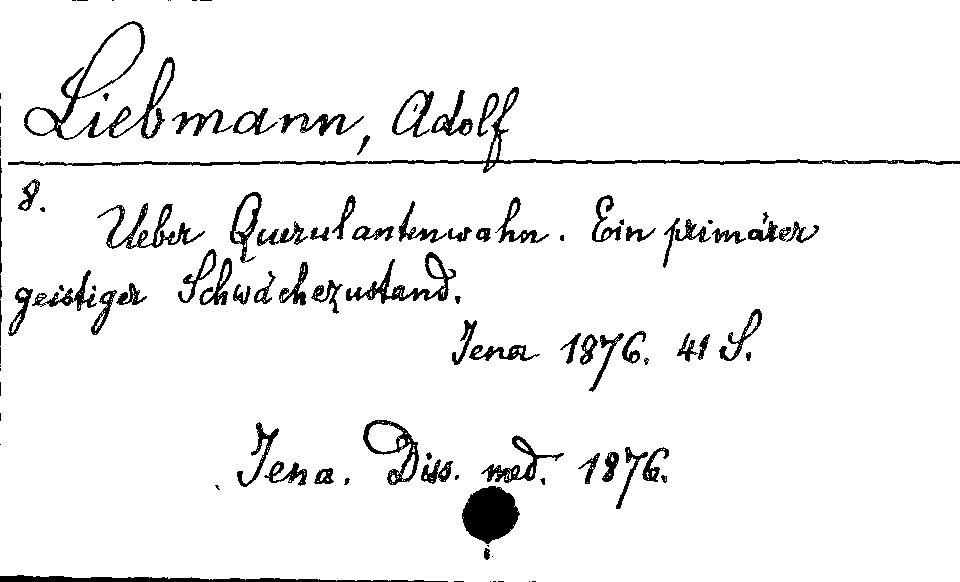 Liebmann, Adolf
8.
Ueber Querulantenwahn. Ein primärer
geistiger Schwächezustand.
Jena 1876. 41 S.
Jena. Diss. med. 1876.